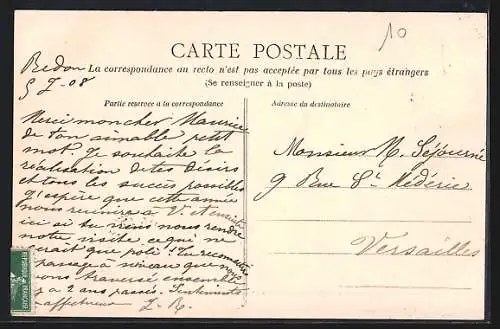 10
CARTE POSTALE
La correspondance au recto n'est pas acceptée par tous les pays étrangers
(Se renseigner à la poste)
Redon
5 Z - 08
Partie reservee a la correspondance
Merci mon cher Maurice
de ton aimable petit
mot. Je souhaite la
réalisation de tes désirs
et tous les succès possibles
J'espère que cette année
nous réunira à
ici ai tu viens nous rendre
notre visite ce qui ne
serait que poli. Tu reconnais
passage à niveau que nous
avons traversé ensemble
y a 2 ans passés. Sentiments
affectueux Z. R.
Adresse du destinataire
Monsieur M. Séjourné
9 Rue St Médéric
Versailles
REPUBLIQUE FRANÇAISE